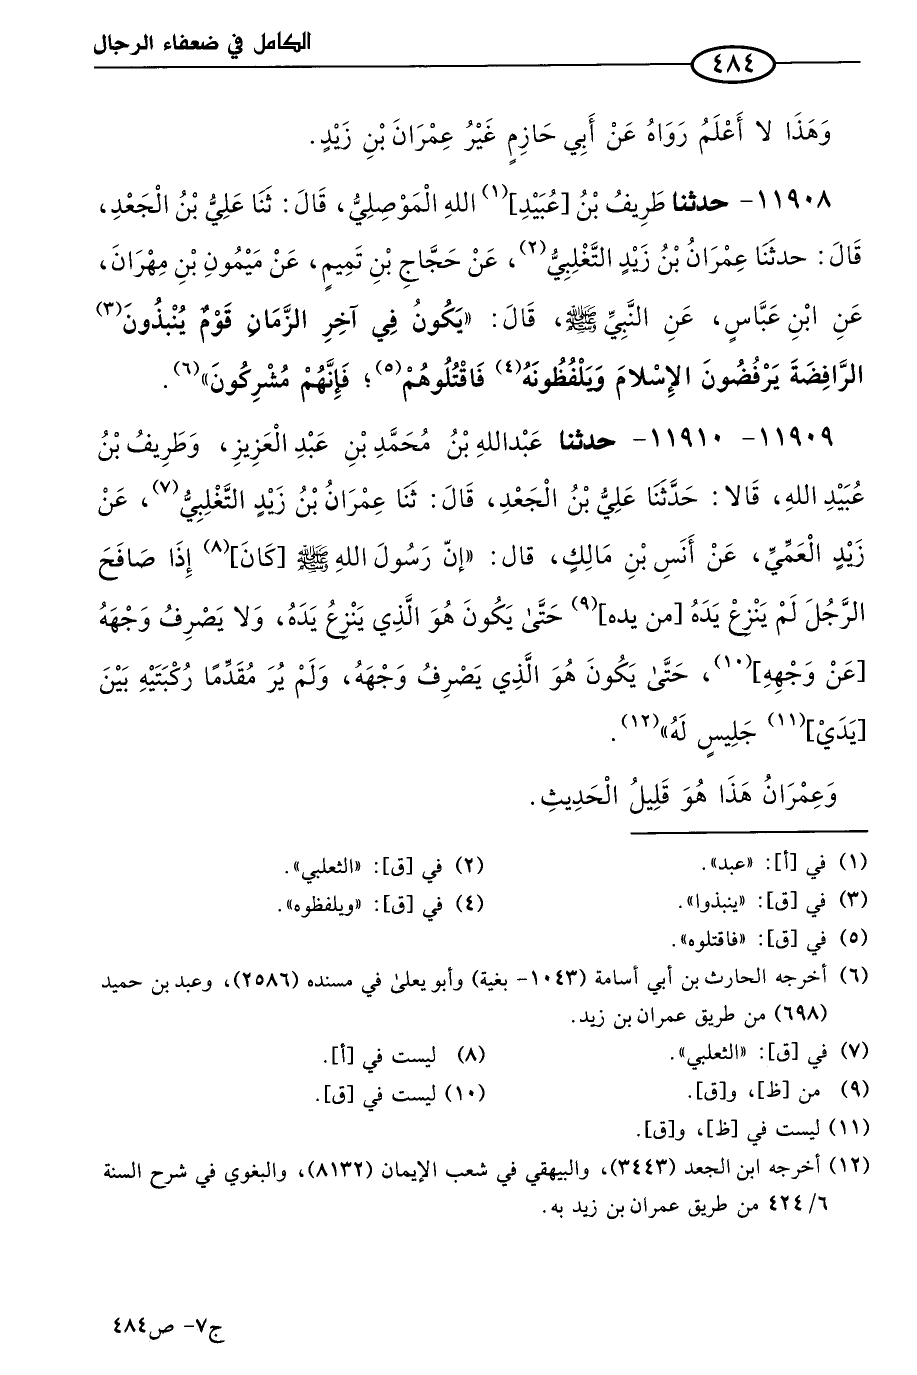 الكامل في ضعفاء الرجال
٤٨٤
وَهَذَا لا أَعْلَمُ رَوَاهُ عَنْ أَبِي حَازِمٍ غَيْرُ عِمْرَانَ بْنِ زَيْدٍ.
١١٩٠٨- حدثنا طَرِيفُ بْنُ [عُبَيْدِ](١) اللهِ الْمَوْصِلِيُّ، قَالَ: ثَنَا عَلِيُّ بْنُ الْجَعْدِ،
قَالَ: حدثَنَا عِمْرَانُ بْنُ زَيْدٍ التَّغْلِبِيُّ(٢)، عَنْ حَجَّاجِ بْنِ تَمِيمٍ، عَنْ مَيْمُونِ بْنِ مِهْرَانَ،
عَنِ ابْنِ عَبَّاسٍ، عَنِ النَّبِيِّ ﷺ، قَالَ: «يَكُونُ فِي آخِرِ الزَّمَانِ قَوْمٌ يُنْبَذُونَ(٣)
الرَّافِضَةَ يَرْفُضُونَ الإِسْلامَ وَيَلْفُظُونَهُ(٤) فَاقْتُلُوهُمْ(٥)؛ فَإِنَّهُمْ مُشْرِكُونَ»(٦).
١١٩٠٩- ١١٩١٠- حدثنا عَبْداللهِ بْنُ مُحَمَّدِ بْنِ عَبْدِ الْعَزِيزِ، وَطَرِيفُ بْنُ
عُبَيْدِ اللهِ، قَالا: حَدَّثَنَا عَلِيُّ بْنُ الْجَعْدِ، قَالَ: ثَنَا عِمْرَانُ بْنُ زَيْدٍ التَّغْلِبِيُّ(٧)، عَنْ
زَيْدٍ الْعَمِّيِّ، عَنْ أَنَسِ بْنِ مَالِكٍ، قال: «إنّ رَسُولَ اللهِ ﷺ [كَانَ](٨) إِذَا صَافَحَ
الرَّجُلَ لَمْ يَنْزِعْ يَدَهُ [من يده](٩) حَتَّىٰ يَكُونَ هُوَ الَّذِي يَنْزِعُ يَدَهُ، وَلا يَصْرِفُ وَجْهَهُ
[عَنْ وَجْهِهِ](١٠)، حَتَّىٰ يَكُونَ هُوَ الَّذِي يَصْرِفُ وَجْهَهُ، وَلَمْ يُرَ مُقَدِّمًا رُكْبَتَيْهِ بَيْنَ
[يَدَيْ](١١) جَلِيسٍ لَهُ»(١٢).
وَعِمْرَانُ هَذَا هُوَ قَلِيلُ الْحَدِيثِ.
(١) في [أ]: «عبد». (٢) في [ق]: «الثعلبي».
(٣) في [ق]: «ينبذوا». (٤) في [ق]: «ويلفظوه».
(٥) في [ق]: «فاقتلوه».
(٦) أخرجه الحارث بن أبي أسامة (١٠٤٣- بغية) وأبو يعلىٰ في مسنده (٢٥٨٦)، وعبد بن حميد
(٦٩٨) من طريق عمران بن زيد.
(٧) في [ق]: «الثعلبي». (٨) ليست في [أ].
(٩) من [ظ]، و[ق]. (١٠) ليست في [ق].
(١١) ليست في [ظ]، و[ق].
(١٢) أخرجه ابن الجعد (٣٤٤٣)، والبيهقي في شعب الإيمان (٨١٣٢)، والبغوي في شرح السنة
٦/ ٤٢٤ من طريق عمران بن زيد به.
ج٧- ص٤٨٤